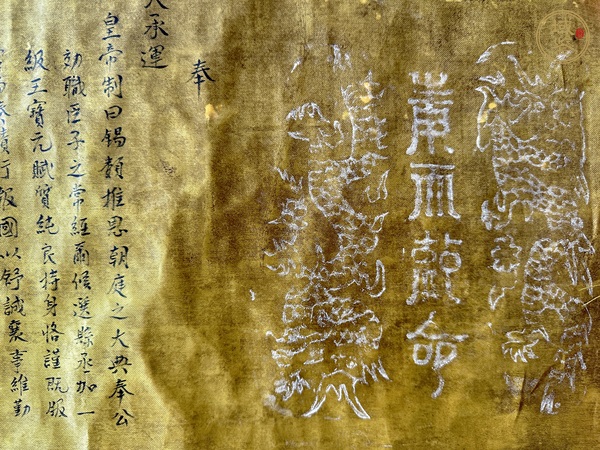 奉天敕命
奉
天承運
皇帝制曰錫類推恩朝庭之大典奉公
効職臣子之常經爾候選縣丞加一
級王寶元賦質純良持身恪謹既服
報國以舒誠襄事維勤